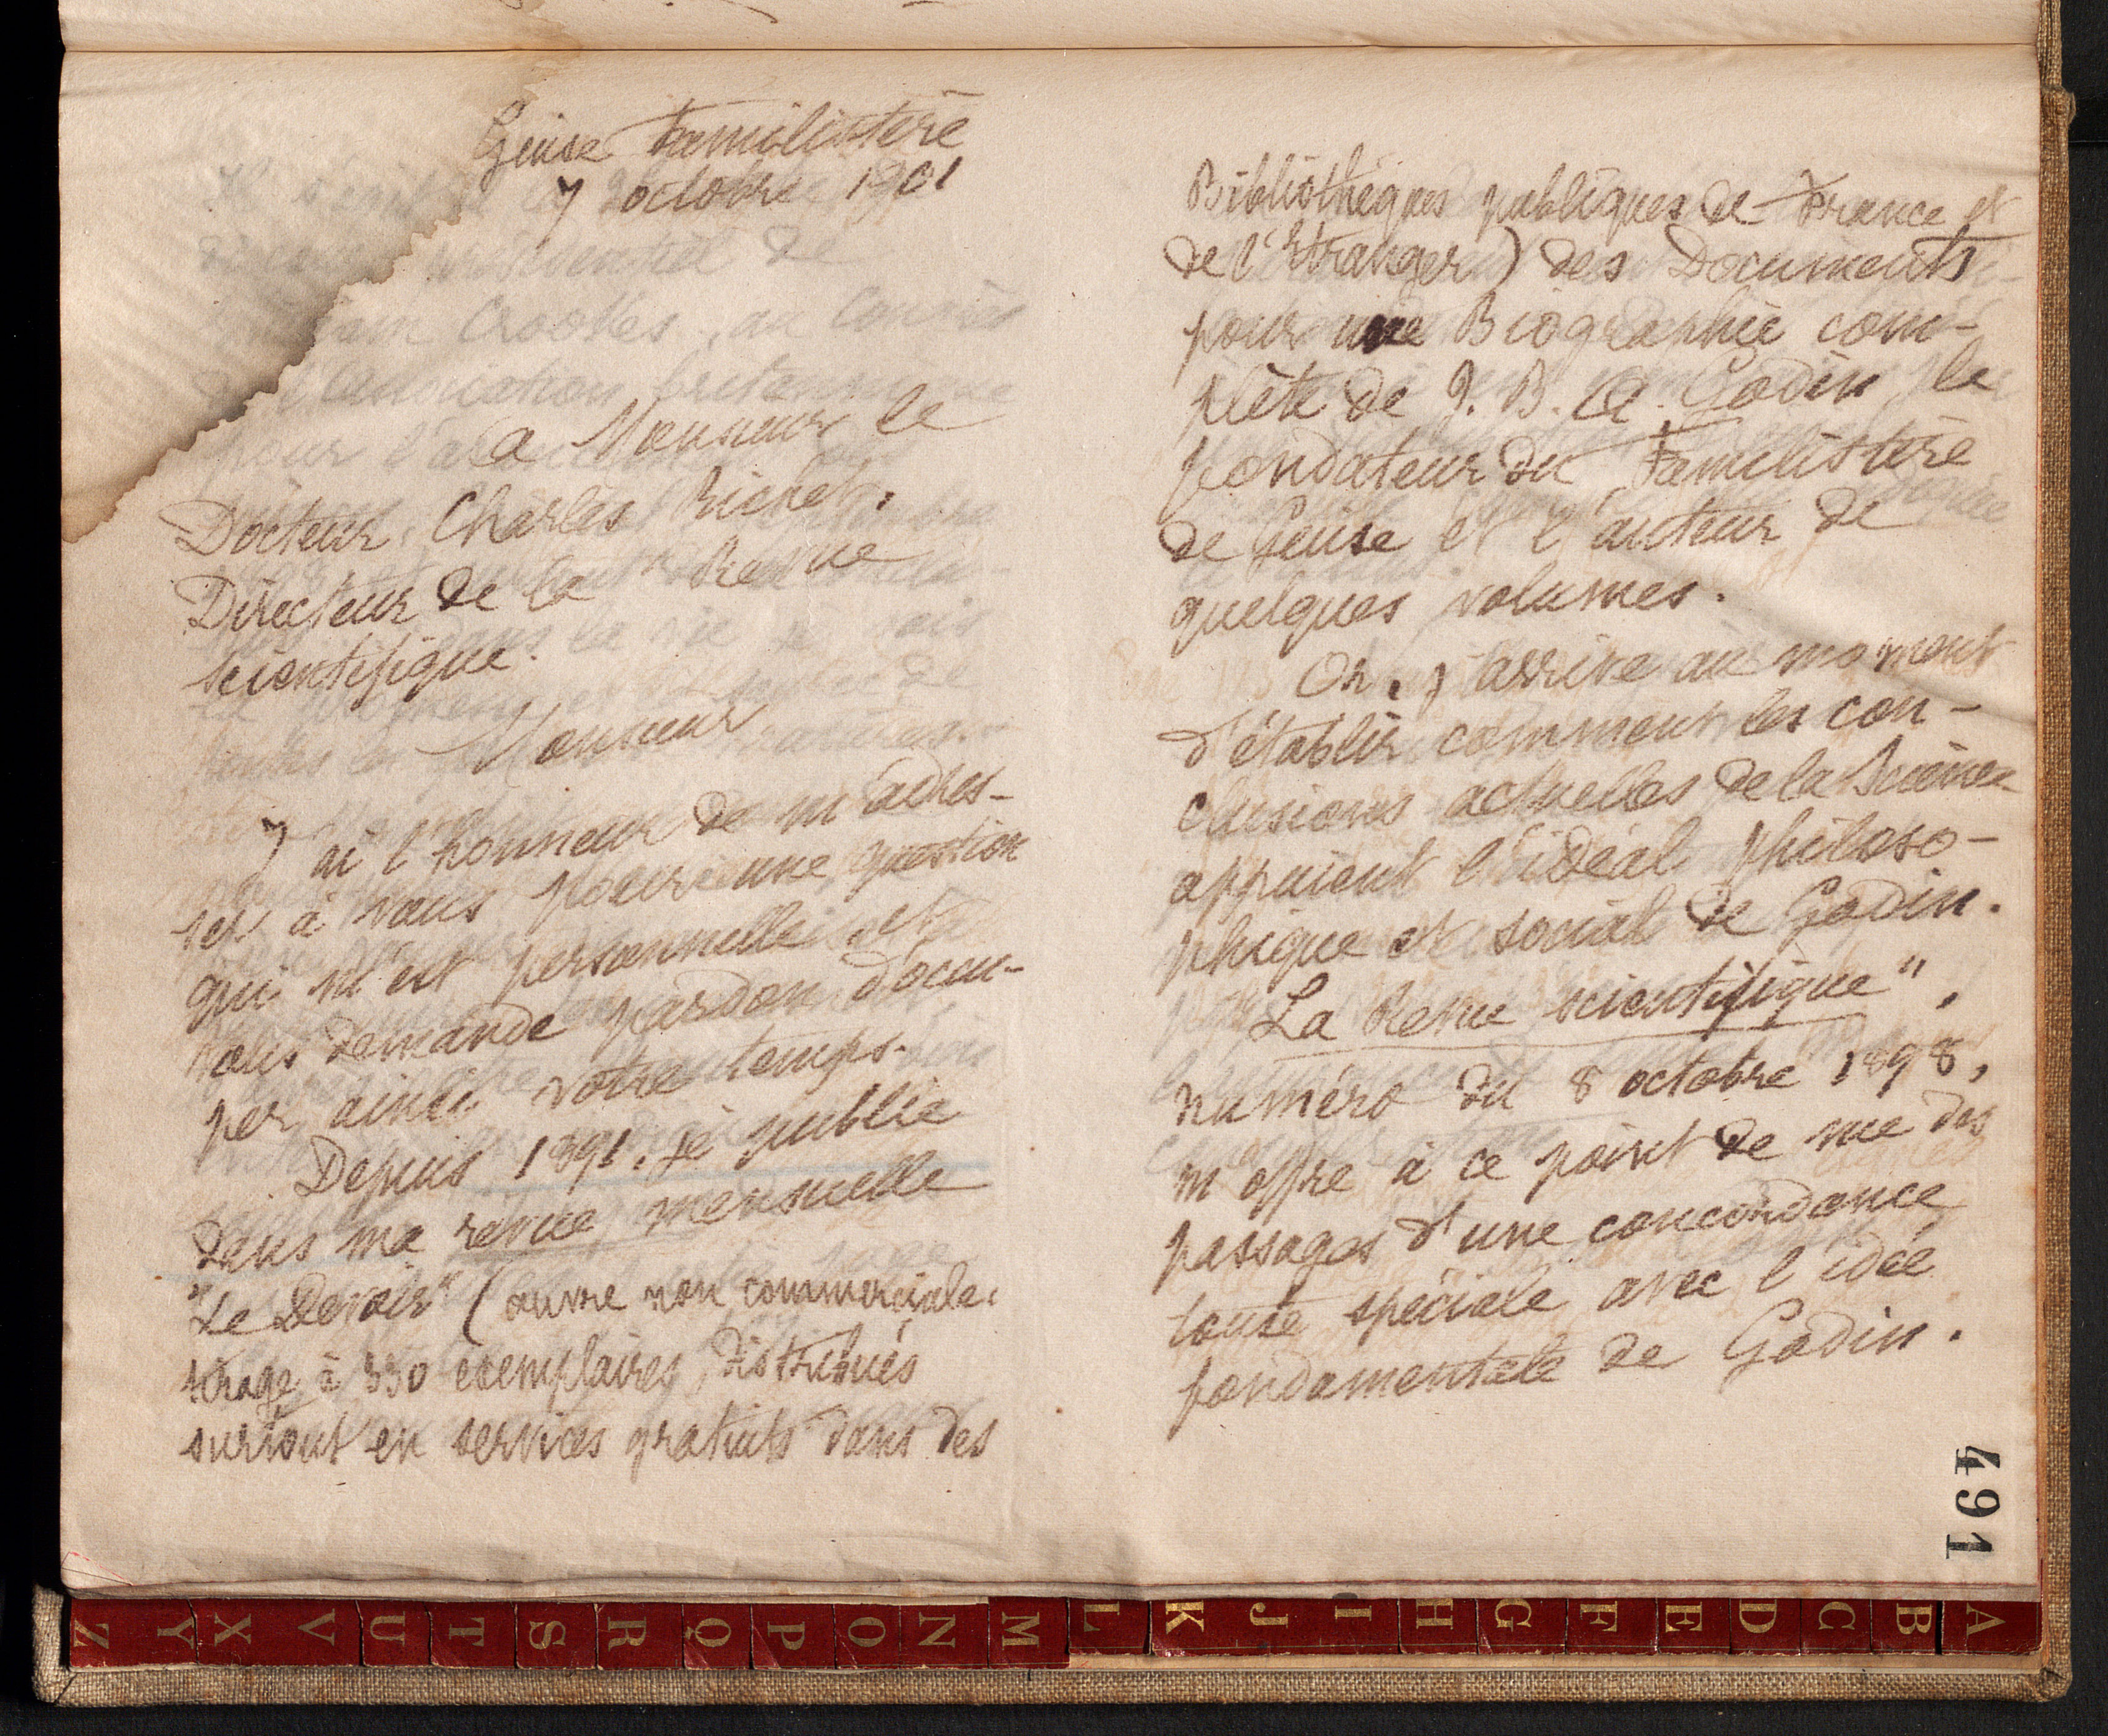 Guise Familistère
7 octobre 1901
a Monsieur le
Docteur Charles Richet.
Directeur de la "Revue
scientifique.
Monsieur
J'ai l'honneur de m'adres-
ser à vous pour une question
qui m'est personnelle, et
vous demande pardon d'occu-
per ainsi votre temps.
Depuis 1891, je publie
dans ma revue mensuelle
"Le Devoir" (œuvre non commerciale.
tirage à 330 exemplaires, distribués
surtout en services gratuits dans des
Bibliothèques publiques de France et
de l'Etranger) des Documents
pour une Biographie com-
plète de J. B. A. Godin, le
fondateur du Familistère
de Guise et l'auteur de
quelques volumes.
Or, j'arrive au moment
d'établir comment les con-
clusions actuelles de la Science
appuient l'idéal philoso-
phique et social de Godin.
La Revue scientifique",
numéro du 8 octobre 1898,
m'offre à ce point de vue des
passages d'une concordance
toute spéciale avec l'idée
fondamentale de Godin.
491
Z Y X V U T S R Q P O N M L K J I H G F E D C B A